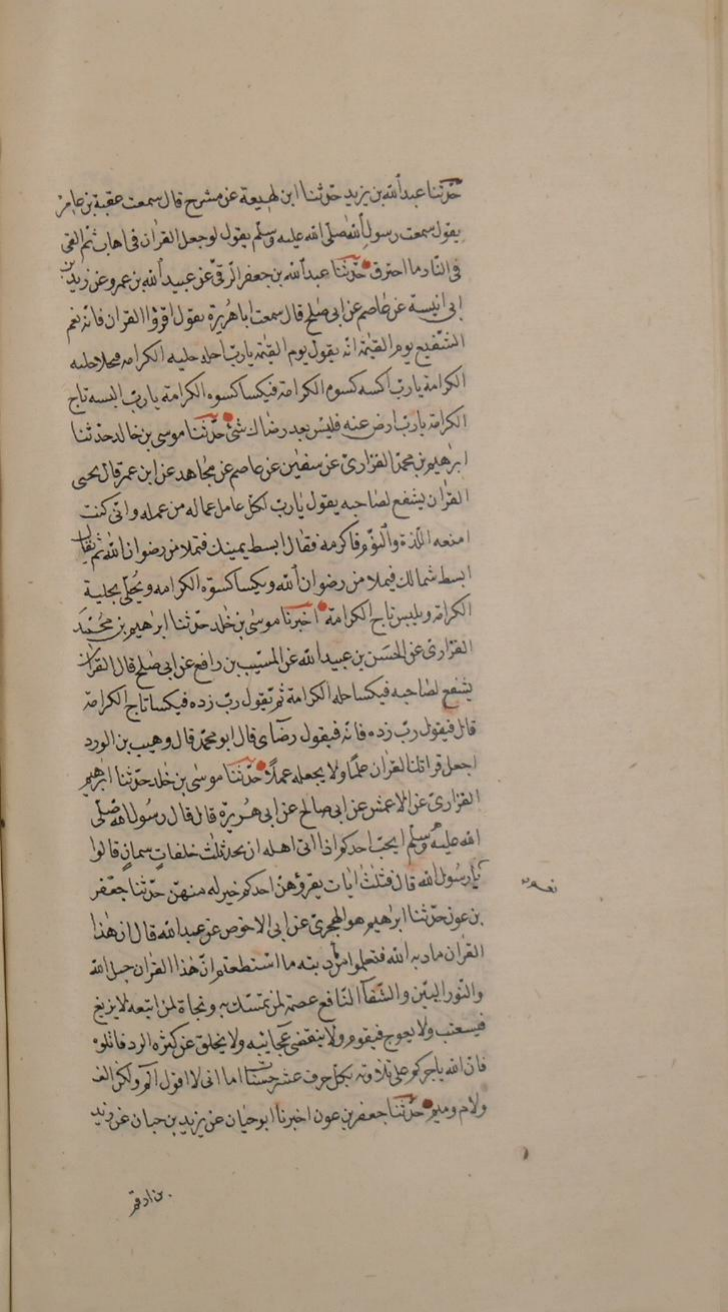 حدثنا عبد الله بن يزيد حدثنا ابن لهيعة عن مشرح قال سمعت عقبة بن عامر
يقول سمعت رسول الله صلى الله عليه وسلم يقول لو جعل القرآن في اهاب ثم القي
في النار ما احترق حدثنا عبد الله بن جعفر الرقي عن عبيد الله بن عمرو عن زيد بن
ابي انيسة عن عاصم عن ابي صلح قال سمعت ابا هريرة يقول اقرؤا القران فانه نعم
الشفيع يوم القيمة انه يقول يوم القيمة يا رب حله حلية الكرامة فيحلا حلية
الكرامة يا رب اكسه كسوة الكرامة فيكسا كسوة الكرامة يا رب البسه تاج
الكرامة يا رب ارض عنه فليس بعد رضاك شئ حدثنا موسى بن خالد حدثنا
ابرهيم بن محمد الفزاري عن سفين عن عاصم عن مجاهد عن ابن عمر قال يجئ
القران يشفع لصاحبه يقول يا رب لكل عامل عمالة من عمله واني كنت
امنعه اللذة والنوم فاكرمه فقال ابسط يمينك فتملا من رضوان الله ثم يقال
ابسط شمالك فيملا من رضوان الله ويكسا كسوة الكرامة ويحلى بحلية
الكرامة ويلبس تاج الكرامة اخبرنا موسى بن خلد حدثنا ابرهيم بن محمد
الفزاري عن الحسن بن عبيد الله عن المسيب بن رافع عن ابي صلح قال القران
يشفع لصاحبه فيكسا حلة الكرامة ثم يقول رب زده فيكسا تاج الكرامة
قال فيقول رب زده فانه فيقول رضاي قال ابو محمد قال وهيب بن الورد
اجعل قراتك القران علما ولا تجعله عملا حدثنا موسى بن خلد حدثنا ابرهيم
الفزاري عن الاعمش عن ابي صالح عن ابي هريرة قال قال رسول الله صلى
الله عليه وسلم ايحب احدكم اذا اتى اهله ان يجد ثلث خلفات سمان قالوا
يا رسول الله قال فثلث ايات يقرؤهن احدكم خير له منهن حدثنا جعفر
بن عون حدثنا ابرهيم هو الهجري عن ابي الاحوص عن عبد الله قال ان هذا
القران مادبة الله فتعلموا من مادبته ما استطعتم وان هذا القران حبل الله
والنور المبين والشفآ النافع عصمة لمن تمسك به ونجاة لمن اتبعه لا يزيغ
فيستعتب ولا يعوج فيقوم ولا ينقضي عجائبه ولا يخلق عن كثرة الرد فاتلوه
فان الله ياجركم على تلاوته بكل حرف عشر حسنات اما اني لا اقول الم ولكن الف
ولام وميم حدثنا جعفر بن عون اخبرنا ابو حيان عن يزيد بن حبان عن زيد
بن ارقم